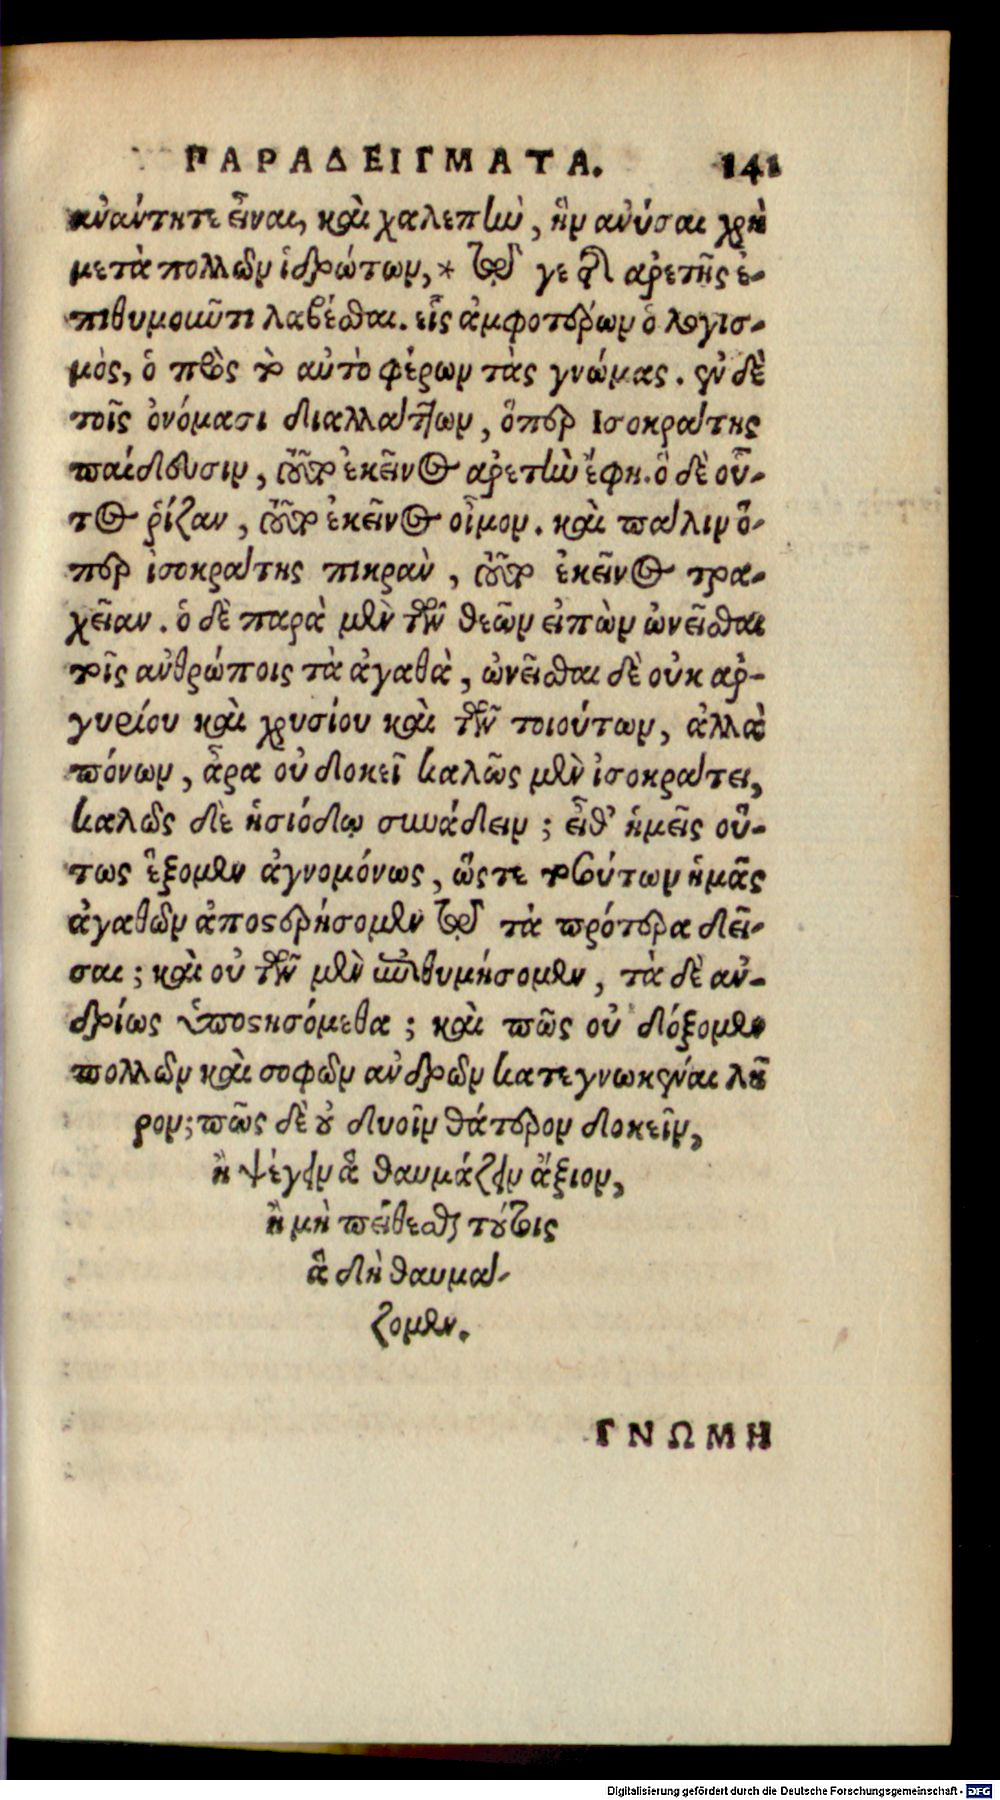 ΠΑΡΑΔΕΙΓΜΑΤΑ. 141
ἀνάντητε εἶναι, καὶ χαλεπὴν, ἣν ἀνύσαι χρὴ
μετὰ πολλῶν ἱδρώτων, * τῷ γε τῆς ἀρετῆς ἐ-
πιθυμοῦντι λαβέσθαι. εἷς ἀμφοτέρων ὁ λογισ-
μὸς, ὁ πρὸς τὸ αὐτὸ φέρων τὰς γνώμας. ἐν δὲ
τοῖς ὀνόμασι διαλλάττων, ὅπερ Ισοκράτης
παίδευσιν, τοῦτο ἐκεῖνος ἀρετὴν ἔφη. ὃ δὲ οὗ-
τος ῥίζαν, τοῦτο ἐκεῖνος οἶμον. καὶ πάλιν ὅ-
περ ἰσοκράτης πικρὰν, τοῦτο ἐκεῖνος τρα-
χεῖαν. ὁ δὲ παρὰ μὲν τῶν θεῶν εἰπὼν ὠνεῖσθαι
τοῖς ἀνθρώποις τὰ ἀγαθὰ, ὠνεῖσθαι δὲ οὐκ ἀρ-
γυρίου καὶ χρυσίου καὶ τῶν τοιούτων, ἀλλὰ
πόνων, ἆρα οὐ δοκεῖ καλῶς μὲν ἰσοκράτει,
καλῶς δὲ ἡσιόδῳ συνάδειν; εἶθ' ἡμεῖς οὕ-
τως ἕξομεν ἀγνομόνως, ὥστε τοσούτων ἡμᾶς
ἀγαθῶν ἀποστερήσομεν τῷ τὰ πρότερα δεῖ-
σαι; καὶ οὐ τῶν μὲν ἐπιθυμήσομεν, τὰ δὲ ἀν-
δρίως ὑποστησόμεθα; καὶ πῶς οὐ δόξομεν
πολλῶν καὶ σοφῶν ἀνδρῶν κατεγνωκέναι λῆ
ρον; πῶς δὲ οὐ δυοῖν θάτερον δοκεῖν,
ἢ ψέγειν ἃ θαυμάζειν ἄξιον,
ἢ μὴ πείθεσθαι τούτοις
ἃ δὴ θαυμά-
ζομεν.
ΓΝΩΜΗ
Digitalisierung gefördert durch die Deutsche Forschungsgemeinschaft - DFG